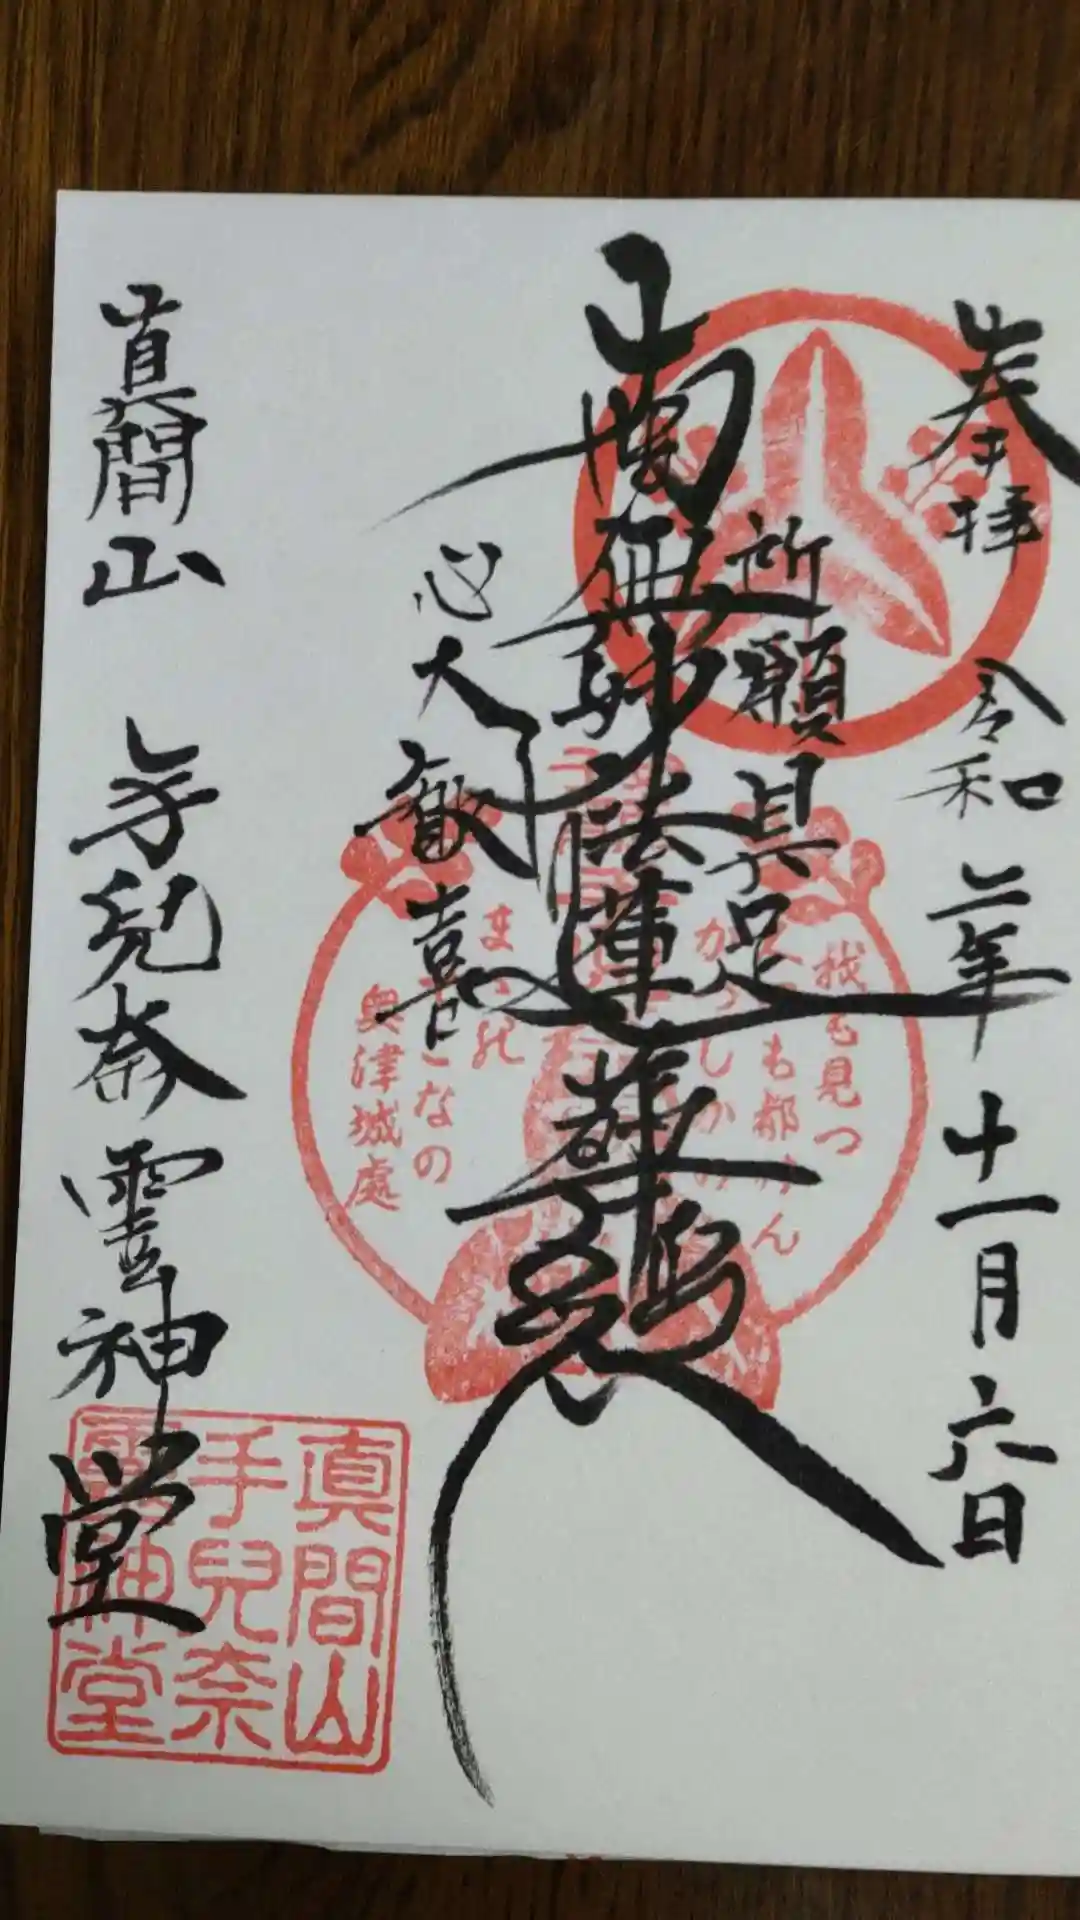 奉拝
令和二年十一月六日
所願具足
南無妙法蓮華経
心大歓喜
真間山
手児奈霊神堂
我も見つ
かつしか
まゝの
てこなの
奥津城處
真間山
手兒奈
霊神堂